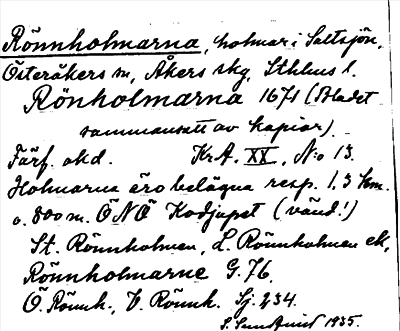 Rönnholmarna, holmar i Saltsjön,
Österåkers sn, Åkers skg, Sthlms l.
Rönholmarna 1671 (Bladet
sammansatt av kopior).
Färf. okd. KrA. XX, No 13.
Holmarna äro belägna resp. 1,3 km.
o. 800 m. ÖNÖ Kodjupet (vänd!)
St. Rönnholmen, L. Rönnholmen ek,
Rönnholmarne G. 76.
Ö. Rönnh., V. Rönnh. Sj. 234.
1935.